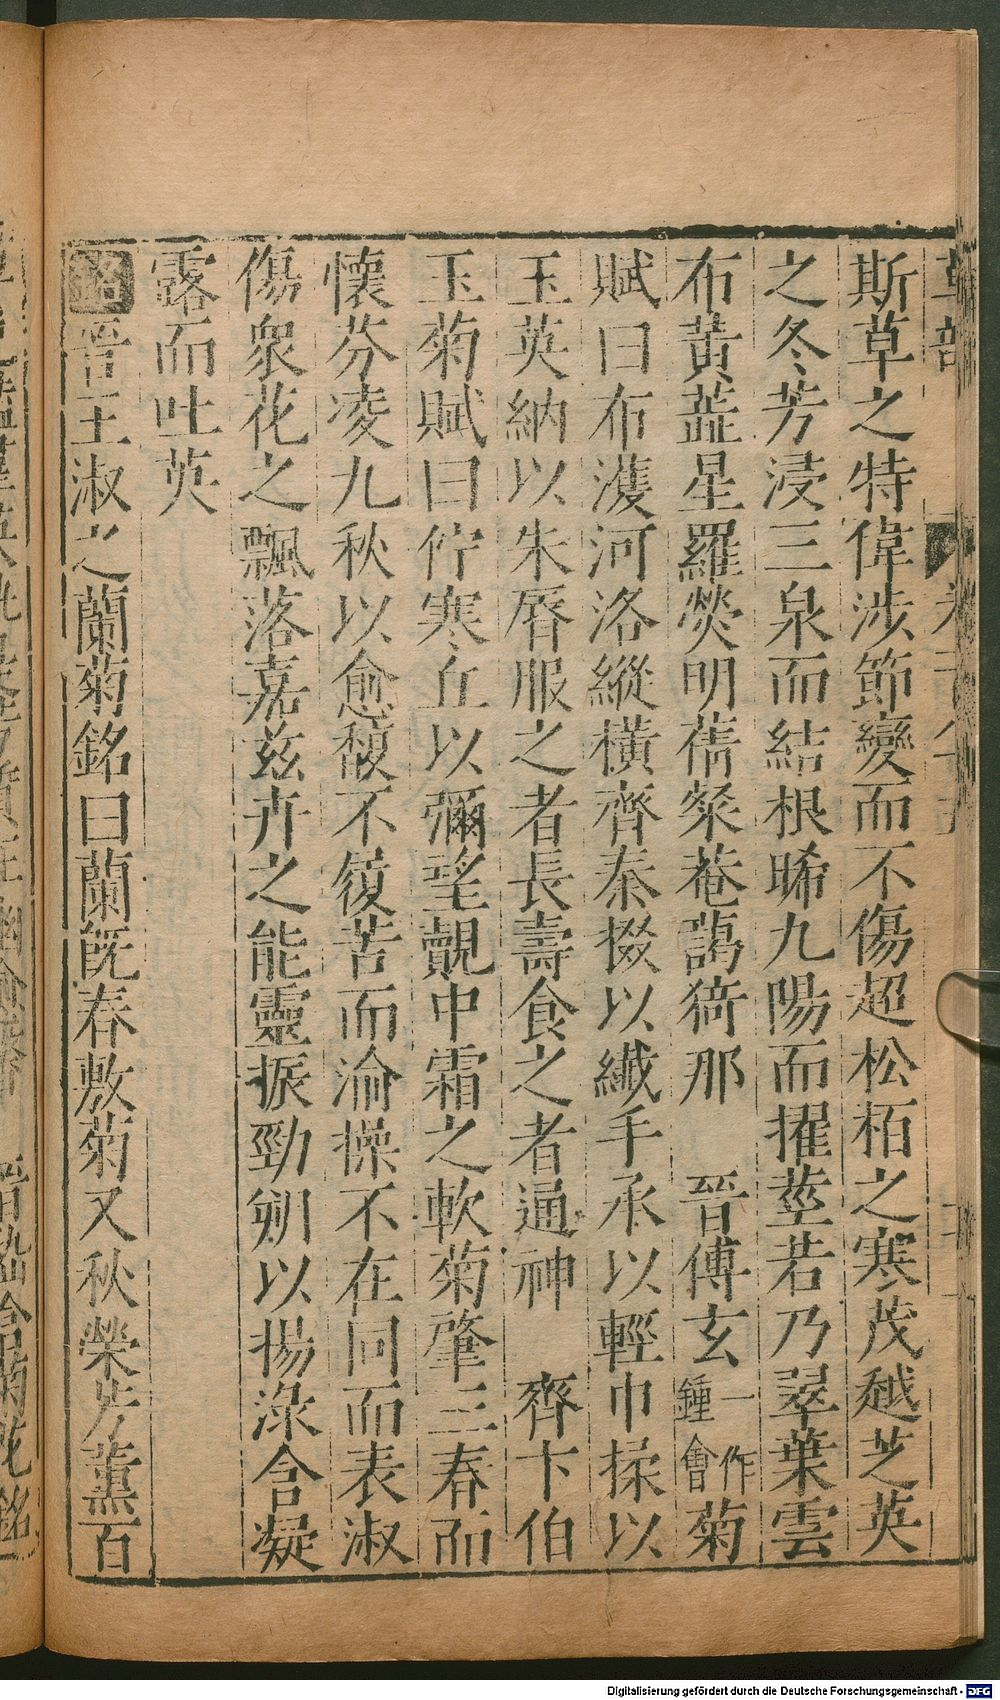 草部
斯草之特偉涉節變而不傷超松栢之寒茂越芝英
之冬芳浸三泉而結根晞九陽而擢莖若乃翠葉雲
布黄蘂星羅熒明蒨粲菴藹猗那　晉傅玄一作鍾會菊
賦曰布濩河洛縱横齊秦掇以纎手承以輕巾揉以
玉英納以朱脣服之者長壽食之者通神　齊卞伯
玉菊賦曰佇寒丘以彌望覿中霜之軟菊肇三春而
懷芬凌九秋以愈馥不筱苦而淪操不在同而表淑
傷衆花之飄落嘉兹卉之能靈振勁朔以揚淥含凝
露而吐英
銘晉王淑之蘭菊銘曰蘭旣春敷菊又秋榮芳薰百
Digitalisierung gefördert durch die Deutsche Forschungsgemeinschaft - DFG